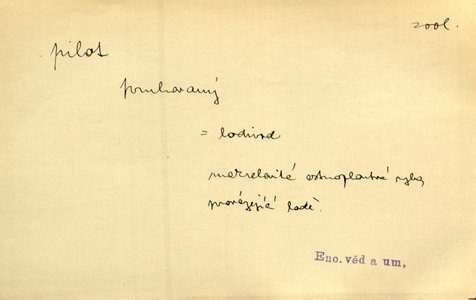 zool.
pilot
pruhovaný
= lodivod
makrelovité ostnoploutvé ryby
provázející lodě.
Enc. věd a um.